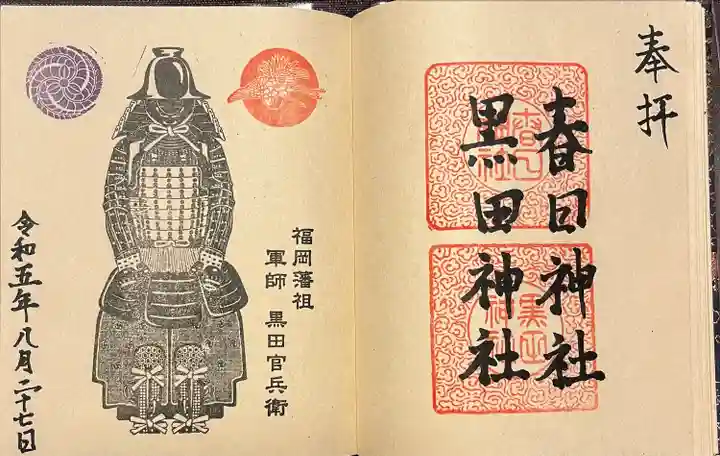 奉拝
春日神社
黒田神社
福岡藩祖
軍師 黒田官兵衛
令和五年八月二十七日